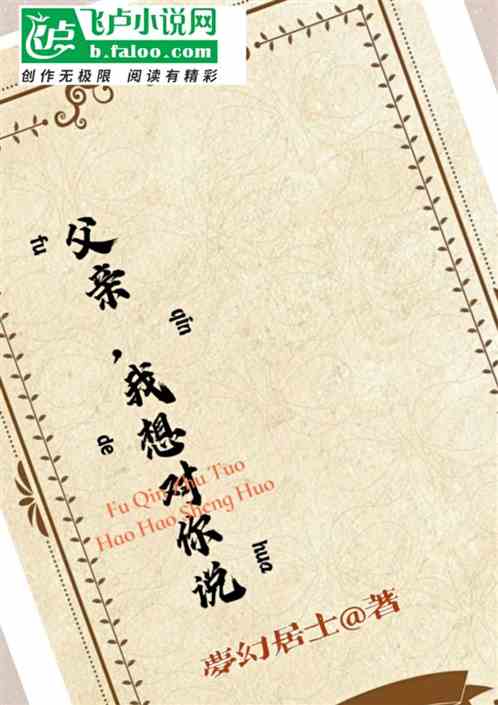 飞卢小说网
b.faloo.com
创作无极限 阅读有精彩
父亲，我想对你说
fu
qin
de
hua
Fu Qin Zhu Tuo
Hao Hao Sheng Huo
夢幻居士@著